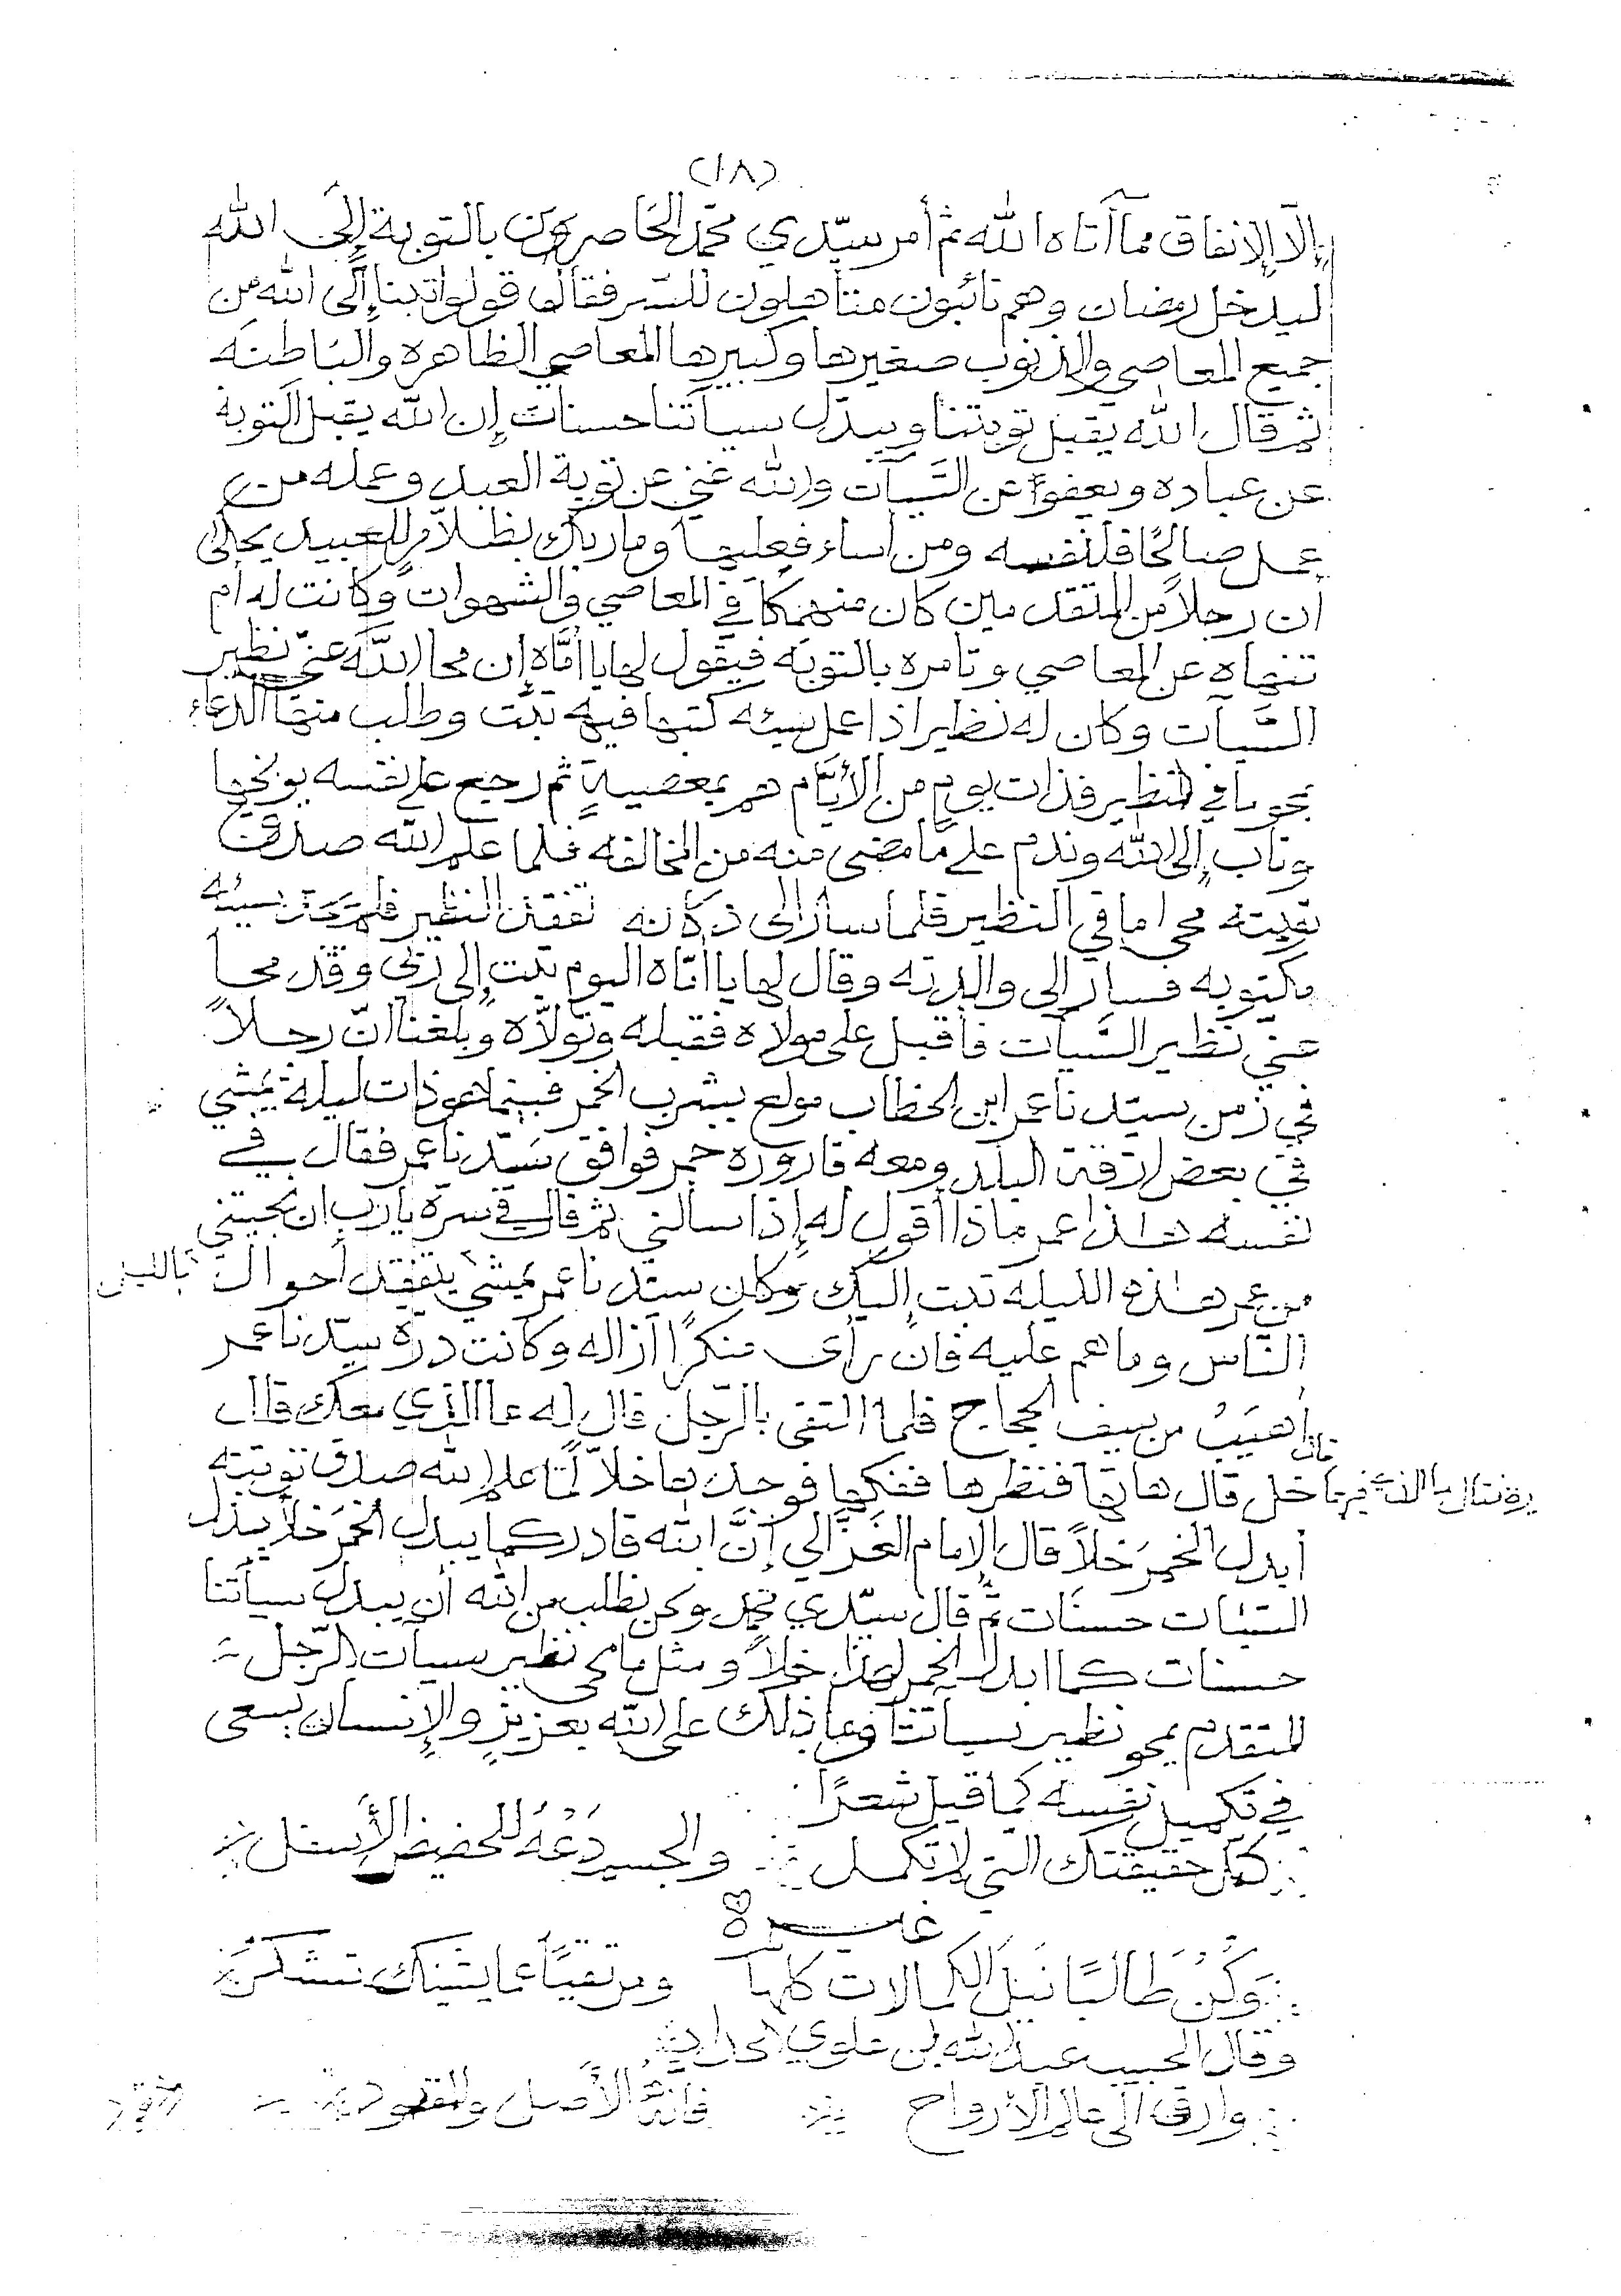 (١٨)
إلا الإنفاق مما آتاه الله ثم أمر سيّدي محمّد الحَاضرين بالتوبة إلَى الله
ليدخل رمضان وهم تائبون متأهلون للسّر فقال قولوا تبنا إلَى الله من
جميع المعاصي والذنوب صغيرها وكبيرها المعاصي الظاهره والبَاطنَه
ثم قال الله يقبل توبتنا ويبدّل سيآتنا حسنات إن الله يقبل التوبة
عن عباده ويعفوا عن السَّيآت والله غني عن توبة العبد وعمله من
عمل صالحًا فلنفسه ومن اساء فعليها وما ربك بظلاّم للعبيد يحكى
ان رجلاً من المتقدمين كان منهمكا في المعاصي والشهوات وكانت له أم
تنهاه عن المعاصي وتامره بالتوبَه فيقول لها يا أمَّاه إن محا اللَّه عنّي نظير
السَّيآت وكان له نظير اذا عمل سيئه كتبها فيه تبت وطلب منها الدعاء
بمحو ما في النظير فذات يوم من الأيَّام هم بمعصيةٍ ثم رجع على نفسه يوبخها
وتاب إلى الله وندم على مَا مضى منه من المخالفه فلما علم الله صدق
توبته محى ما في النظير فلما سار الى دكانه تفقد النظير فلم يَجَد سيئه
مكتوبه فسار إلى والدته وقال لها يا أمّاه اليوم تبت إلى ربّى وقد محا
عنّي نظير السَّيآت فاقبل على مولاه فقبله وتولاّه وبلغنا انّ رجلاً
في زمن سيّدنا عمر ابن الخطاب مولع بشرب الخمر فبينما هو ذات ليلة يمشي
في بعض ازقة البلد ومعه قارورة خمر فوافق سَيّدنا عمر فقال في
نفسه هذا عمر ماذا أقول له إذا سالني ثم قال في سرّه يا رب ان نجيتني
من عمر هذه الليله تبت إليك وكان سيّدنا عمر يمشي يتفقد أحوال بالليل
النّاس وما هم عليه فان رأى منكرًا أزاله وكانت درّة سيّدنا عمر
أهيَبُ من سيف الحجاج فلما التقى بالرّجل قال له ما الذي معك قال
قاروره فقال ما الذي فيها قال خل قال هاتها فنظرها ففكها فوجدها خلاّ لمّا علم الله صدق توبته
أبدل الخمرَ خلاً قال الإمام الغَزَّالي إنَّ الله قادر كما يبدل الخمرَ خلاً يبدل
السّيّئات حسنَات ثمَّ قال سيّدي محمّد ونحن نطلب من الله أن يبدل سيآتنا
حسنات كما ابدل الخمر لهذا خلاً ومثل ما محى نظير سيآت الرّجل
المتقدم يمحو نظير سيآتنا وما ذلك على الله بعزيزٍ والإنسان يسعى
في تكميل نفسه كما قيل شعرًا
كمّل حقيقتك التي لم تكمل والجسم دَعْهُ للحضيض الأسفل
غيره
وَكُنْ طَالبًا نَيلَ الكمالات كلّها ومرتقيًا عما يشينك تشكرَنْ
وقال الحبيب عبدالله بن علوي الحداد
وارق الى عالم الأرواح فانّهُ الأصل والمقصود